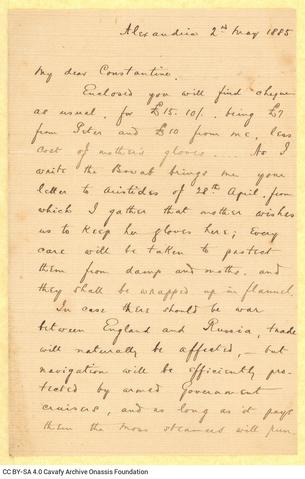 Alexandria 2nd May 1885
My dear Constantine.
Enclosed you will find cheque
as usual, for £15.10/. being £7
from Peter and £10 from me, less
cost of mother's gloves.... As I
write the Bowab brings me your
letter to Aristides of 28th April, from
which I gather that mother wishes
us to keep her gloves here; Every
care will be taken to protect
them from damp and moths. and
they shall be wrapped up in flannel.
In case there should be war
between England and Russia, trade
will naturally be affected, - but
navigation will be efficiently pro-
tected by armed Government
cruisers, and as long as it pays
them the Moss steamers will run
CC BY-SA 4.0 Cavafy Archive Onassis Foundation